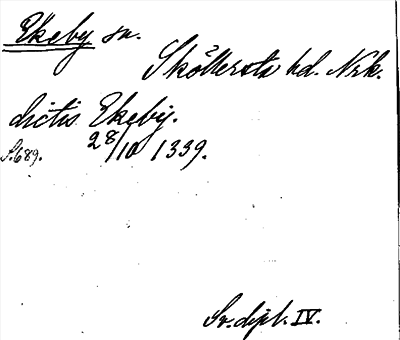 Ekeby sn.
Sköllersta hd. Nrk.
dictis Ekeby.
S. 689. 28/10 1339.
Sv. dipl. IV.